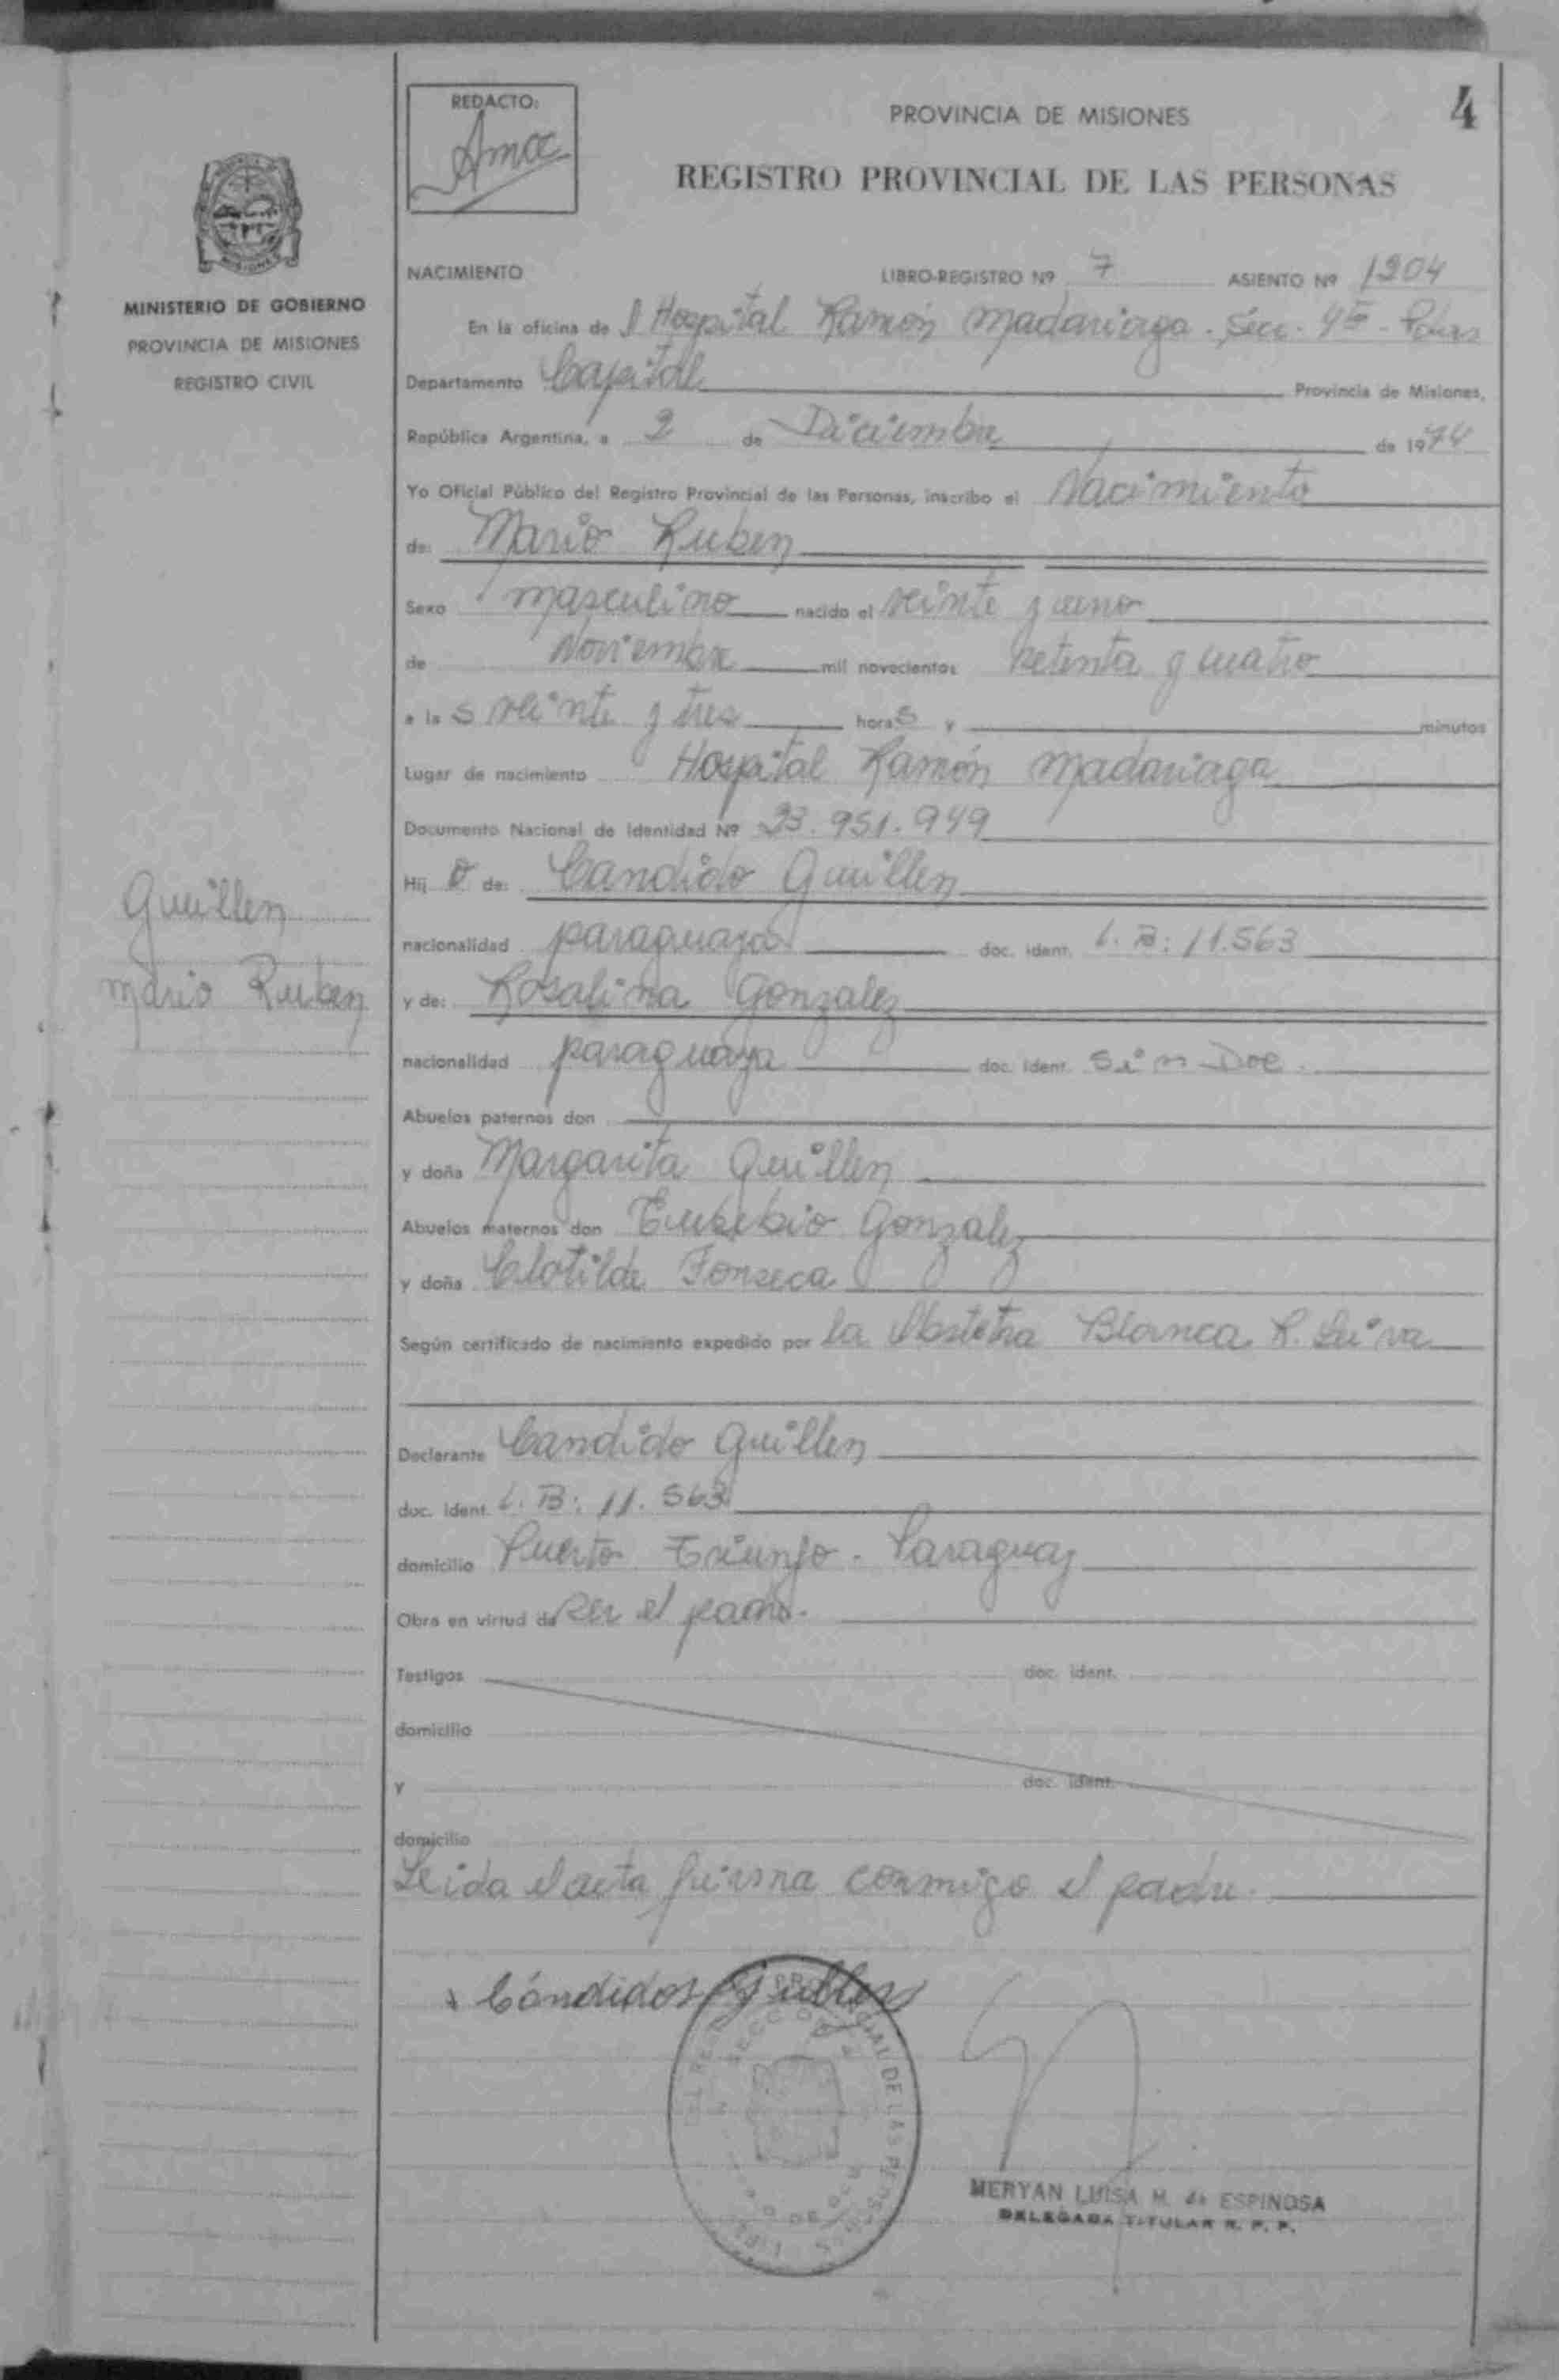 REDACTO:
4
PROVINCIA DE MISIONES
REGISTRO PROVINCIAL DE LAS PERSONAS
MINISTERIO DE GOBIERNO
PROVINCIA DE MISIONES
REGISTRO CIVIL
NACIMIENTO LIBRO-REGISTRO Nº 7 ASIENTO Nº 1204
En la oficina de l Hospital Ramón Madariaga. Secc. 4ta - Pdas
Departamento Capital Provincia de Misiones,
República Argentina, a 2 de Diciembre de 1974
Yo Oficial Público del Registro Provincial de las Personas, inscribo el Nacimiento
de: Mario Ruben
Sexo masculino nacido el veinte y uno
de Noviembre mil novecientos setenta y cuatro
a la s veinte y tres hora s y minutos
Lugar de nacimiento Hospital Ramón Madariaga
Documento Nacional de Identidad Nº 23.951.949
Hij o de: Candido Guillen
nacionalidad paraguaya doc. ident. C. B: 11.563
Guillen
Mario Ruben
y de: Rosalina Gonzalez
nacionalidad paraguaya doc. ident. Sin Doc.
Abuelos paternos don
y doña Margarita Guillen
Abuelos maternos don Eusebio Gonzalez
y doña Clotilde Fonseca
Según certificado de nacimiento expedido por la Obstetra Blanca R. Leiva
Declarante Candido Guillen
doc. ident. C. B: 11.563
domicilio Puerto Triunfo - Paraguay
Obra en virtud de ser el padre.
Testigos doc. ident.
domicilio
y doc. ident.
domicilio
Leida el acta firma conmigo el padre.
Cándido Guillen
MERYAN LUISA M. de ESPINOSA
DELEGADA TITULAR R. P. P.